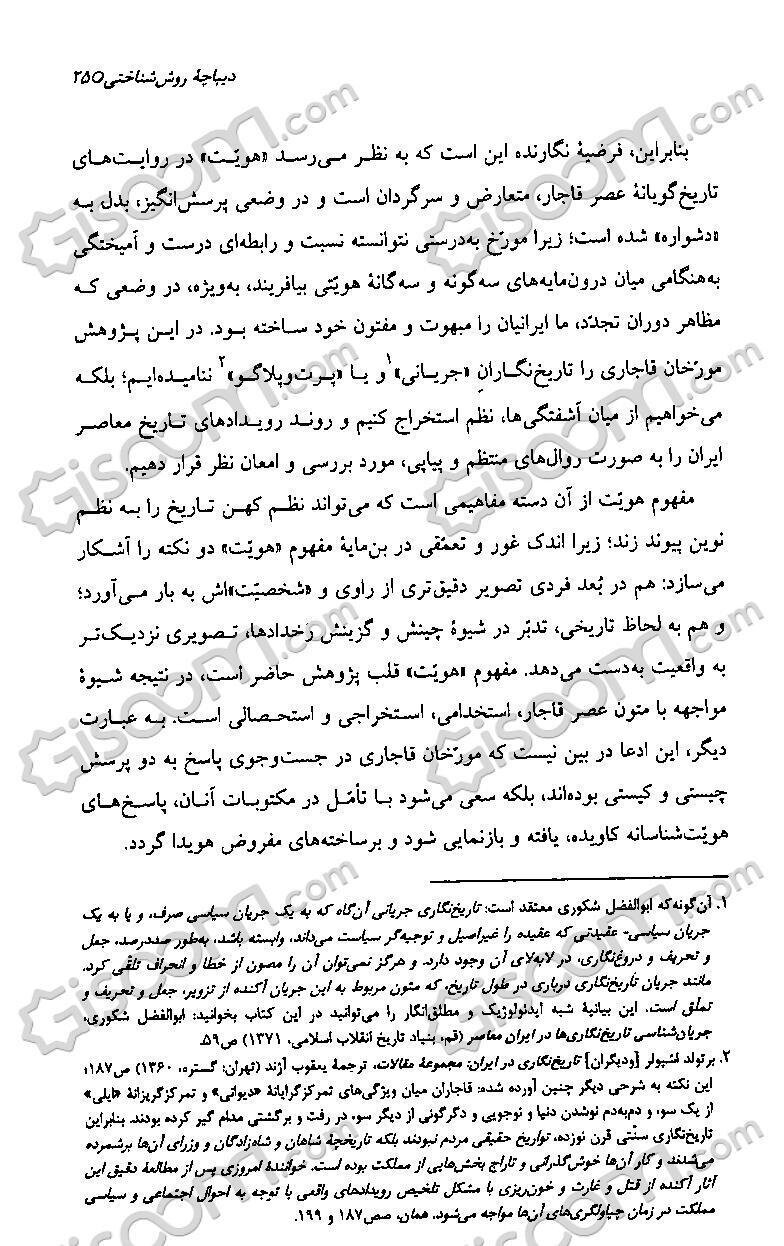 دیباچهٔ روش‌شناختی ۲۵۵
بنابراین، فرضیهٔ نگارنده این است که به نظر می‌رسد «هویّت» در روایت‌های
تاریخ‌گویانهٔ عصر قاجار، متعارض و سرگردان است و در وضعی پرسش‌انگیز، بدل به
«دشواره» شده است؛ زیرا مورّخ به‌درستی نتوانسته نسبت و رابطه‌ای درست و آمیختگی
به‌هنگامی میان درون‌مایه‌های سه‌گونه و سه‌گانهٔ هویّتی بیافریند، به‌ویژه، در وضعی که
مظاهر دوران تجدّد، ما ایرانیان را مبهوت و مفتون خود ساخته بود. در این پژوهش
مورّخان قاجاری را تاریخ‌نگارانِ «جریانی»۱ و یا «پرت‌وپلاگو»۲ ننامیده‌ایم؛ بلکه
می‌خواهیم از میان آشفتگی‌ها، نظم استخراج کنیم و روند رویدادهای تاریخ معاصر
ایران را به صورت روال‌های منتظم و پیاپی، مورد بررسی و امعان نظر قرار دهیم.
مفهوم هویّت از آن دسته مفاهیمی است که می‌تواند نظم کهن تاریخ را به نظم
نوین پیوند زند؛ زیرا اندک غور و تعمّقی در بن‌مایهٔ مفهوم «هویّت» دو نکته را آشکار
می‌سازد: هم در بُعد فردی تصویر دقیق‌تری از راوی و «شخصیّت»اش به بار می‌آورد؛
و هم به لحاظ تاریخی، تدبّر در شیوهٔ چینش و گزینش رخدادها، تصویری نزدیک‌تر
به واقعیت به‌دست می‌دهد. مفهوم «هویّت» قلب پژوهش حاضر است، در نتیجه شیوهٔ
مواجهه با متون عصر قاجار، استخدامی، استخراجی و استحصالی است. به عبارت
دیگر، این ادعا در بین نیست که مورّخان قاجاری در جست‌وجوی پاسخ به دو پرسش
چیستی و کیستی بوده‌اند، بلکه سعی می‌شود با تأمّل در مکتوبات آنان، پاسخ‌های
هویّت‌شناسانه کاویده، یافته و بازنمایی شود و برساخته‌های مفروض هویدا گردد.
۱. آن‌گونه‌که ابوالفضل شکوری معتقد است: تاریخ‌نگاری جریانی آن‌گاه که به یک جریان سیاسی صرف، و یا به یک
جریان سیاسی- عقیدتی که عقیده را غیراصیل و توجیه‌گر سیاست می‌داند، وابسته باشد، به‌طور صددرصد، جعل
و تحریف و دروغ‌نگاری، در لابه‌لای آن وجود دارد. و هرگز نمی‌توان آن را مصون از خطا و انحراف تلقّی کرد.
مانند جریان تاریخ‌نگاری درباری در طول تاریخ، که متون مربوط به این جریان آکنده از تزویر، جعل و تحریف و
تملق است. این بیانیهٔ شبه ایدئولوژیک و مطلق‌انگار را می‌توانید در این کتاب بخوانید: ابوالفضل شکوری،
جریان‌شناسی تاریخ‌نگاری‌ها در ایران معاصر (قم، بنیاد تاریخ انقلاب اسلامی، ۱۳۷۱) ص۵۹.
۲. برتولد اشپولر [ودیگران] تاریخ‌نگاری در ایران: مجموعهٔ مقالات، ترجمهٔ یعقوب آژند (تهران: گستره، ۱۳۶۰) ص۱۸۷؛
این نکته به شرحی دیگر چنین آورده شده: قاجاران میان ویژگی‌های تمرکزگرایانهٔ «دیوانی» و تمرکزگریزانهٔ «ایلی»
از یک سو، و دم‌به‌دم نوشدن دنیا و نوجویی و دگرگونی از دیگر سو، در رفت و برگشتی مدام گیر کرده بودند. بنابراین
تاریخ‌نگاری سنّتی قرن نوزده، تواریخ حقیقی مردم نبودند بلکه تاریخچهٔ شاهان و شاه‌زادگان و وزرای آن‌ها برشمرده
می‌شدند و کار آن‌ها خوش‌گذرانی و تاراج بخش‌هایی از مملکت بوده است. خوانندهٔ امروزی پس از مطالعهٔ دقیق این
آثار آکنده از قتل و غارت و خون‌ریزی با مشکل تلخیص رویدادهای واقعی با توجه به احوال اجتماعی و سیاسی
مملکت در زمان چپاولگری‌های آن‌ها مواجه می‌شود. همان، صص۱۸۷ و ۱۹۹.